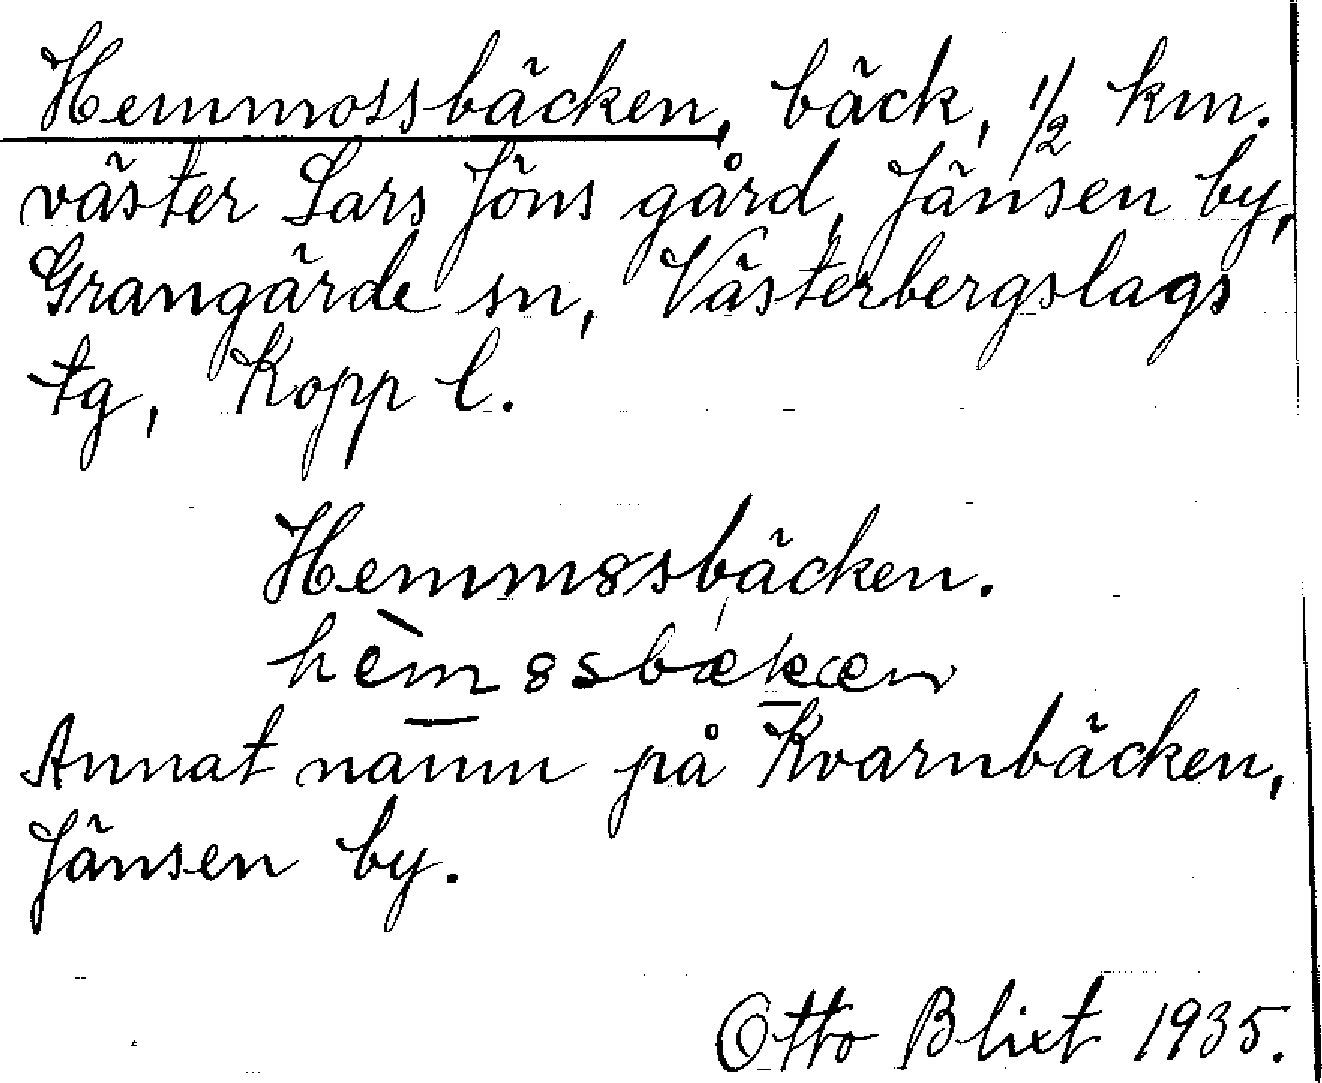 Hemmossbäcken, bäck, 1/2 km.
väster Lars Jöns gård, Jänsen by,
Grangärde sn, Västerbergslags
tg, Kopp l.
Hemm8ssbäcken.
hèm8sbækæn
Annat namn på Kvarnbäcken,
Jänsen by.
Otto Blixt 1935.